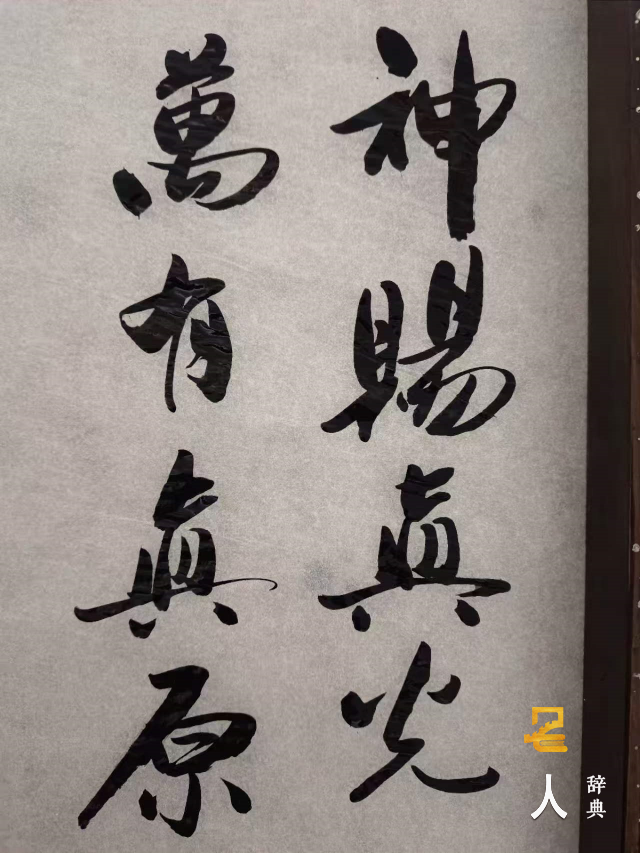 神賜真光
萬有真原
人
辞典